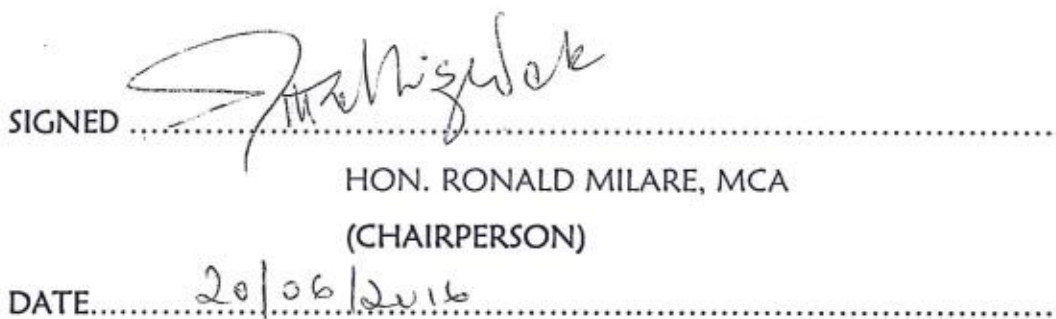 SIGNED ........................................................................
HON. RONALD MILARE, MCA
(CHAIRPERSON)
DATE........20/06/2016........................................................